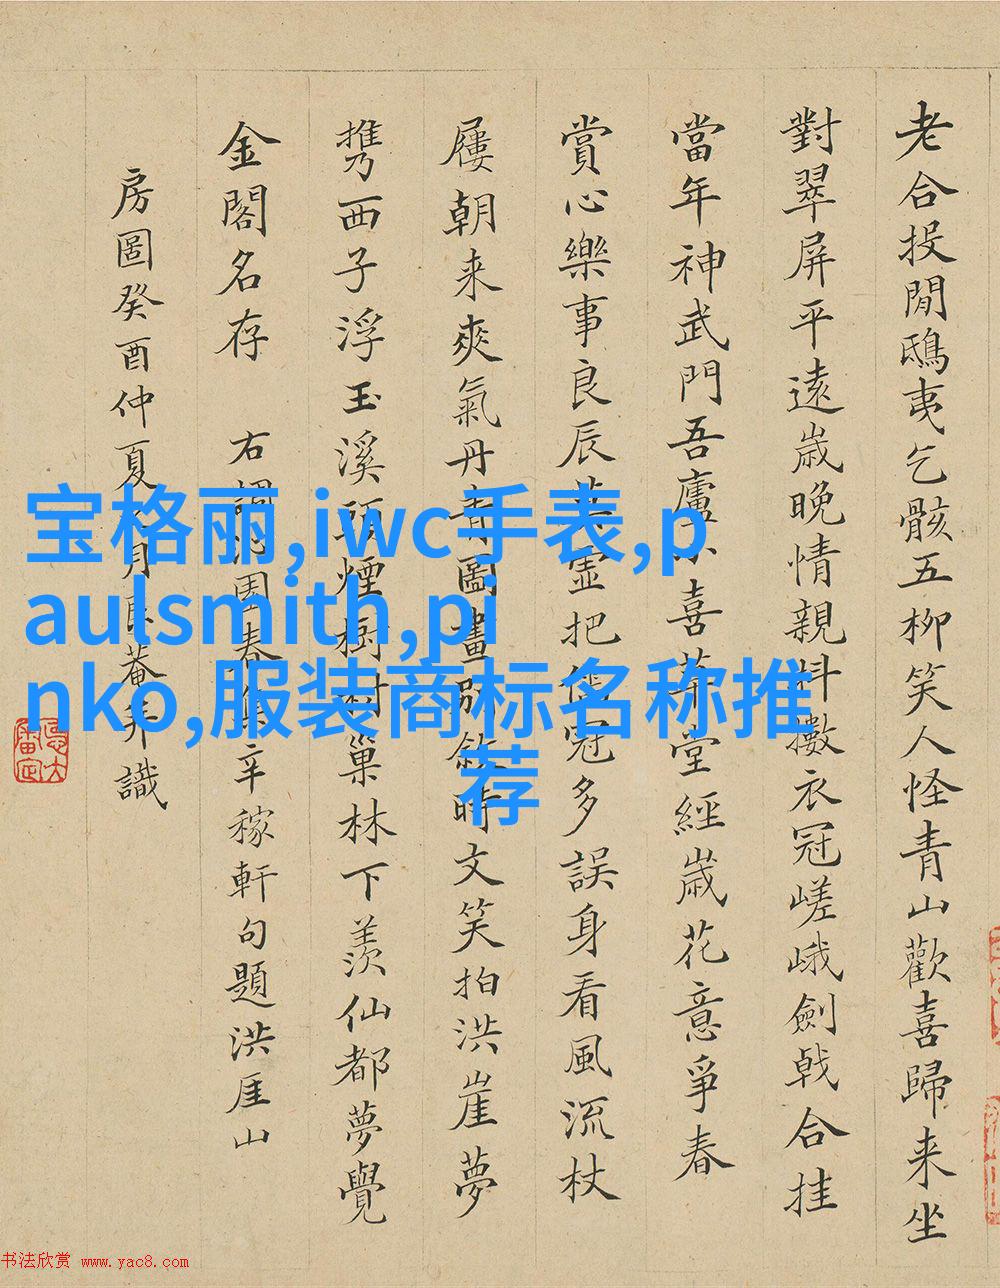 老合投閒鴟夷乞骸五柳笑人怪青山歡喜歸来坐
對翠屏平遠歲晚情親抖擻衣冠嵯峨劍戟合挂
當年神武門吾廬小喜草堂經歲花意爭春
賞心樂事良辰莫虛把儒冠多誤身看風流杖
屨朝来爽氣丹青圖畫別敘時文笑拍洪崖夢
携西子浮玉溪頭煙樹巢林下羨仙都夢覺
金閣名存 右調沁園春集辛稼軒句題洪厓山
房圖癸酉仲夏月艮菴并識
宝格丽,iwc手表,p
aulsmith,pi
nko,服装商标名称推
荐
书法欣赏 www.yac8.com